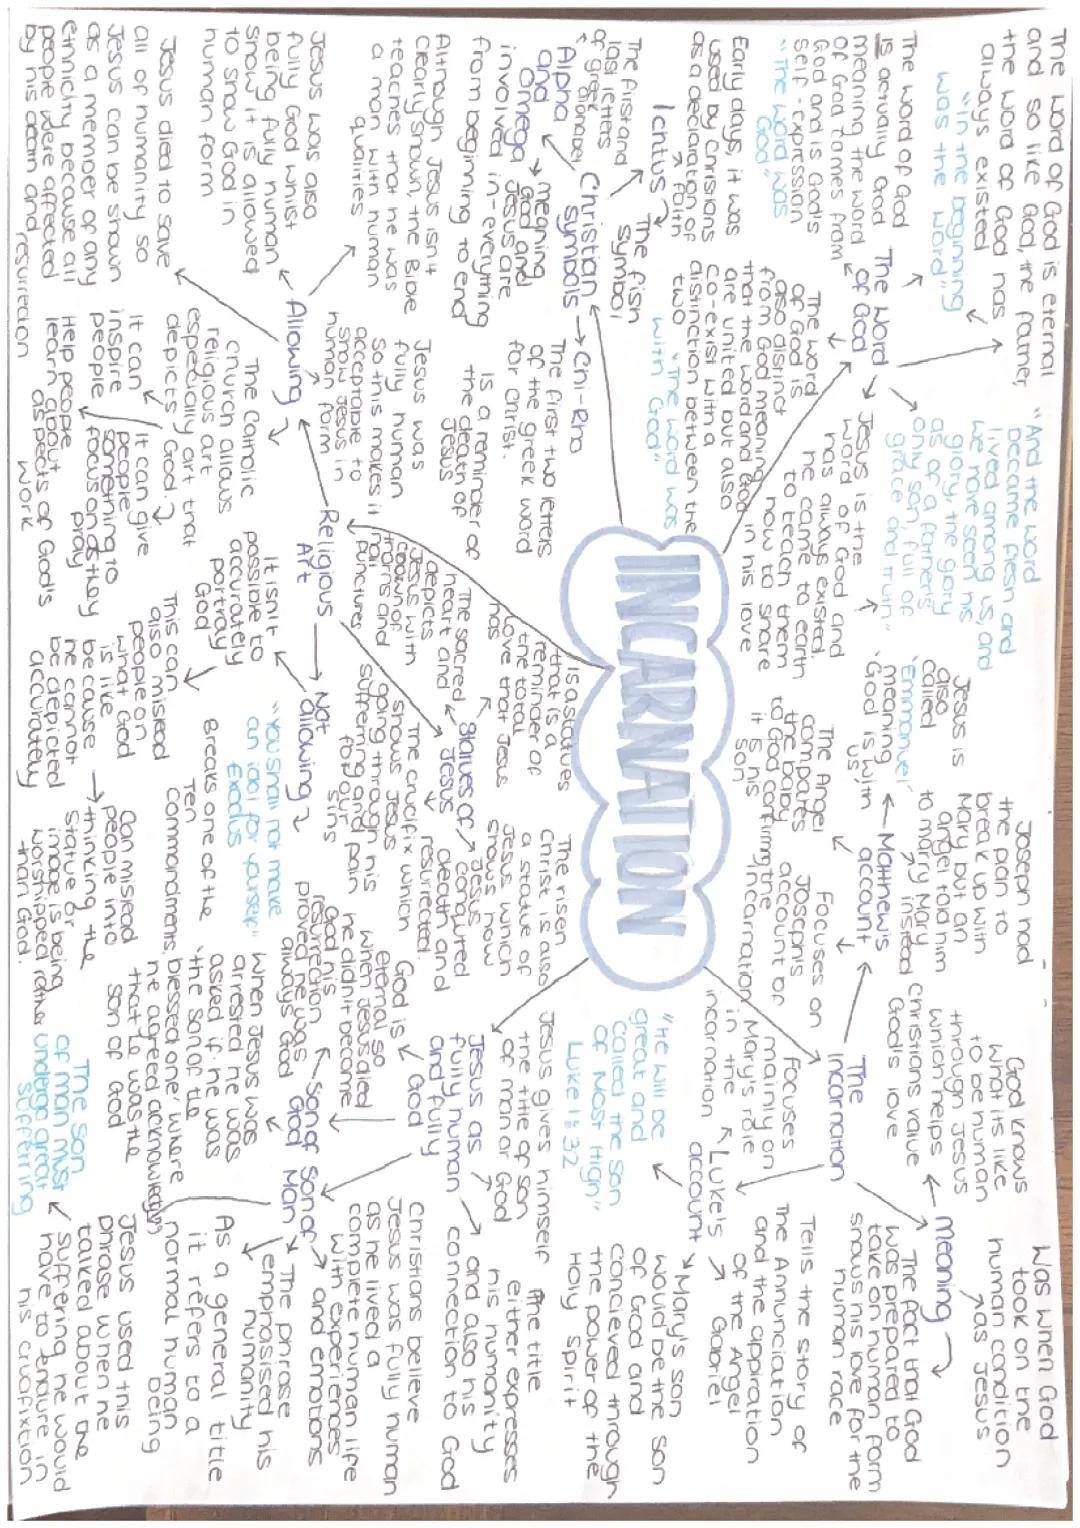 INCARNATION
The Word of God
The word of God is eternal
and so like God, the father,
the word of God has
always existed
"In the beginning
was the word"
The word of God
is actually God
meaning the word
of God comes from
God and is God's
self-expression
"The word was
God"
The word
of God is
also distinct
from God meaning
that the word and God
are united but also
co-exist with a
distinction between the
two
"The word was
with God"
"And the word
became flesh and
lived among us, and
we have seen his
glory, the glory
as of a father's
only son, full of
grace and truth"
Jesus is the
word of God and
has always existed.
he came to earth
to teach them
how to share
in his love
Christian
symbols
Ichtus
The fish
symbol
Early days, it was
used by Chrisians
as a declaration of
faith
Alpha
and
Omega
The first and
last letters
of greek
alphabet
meaning
God and
Jesus are
involved in everything
from beginning to end
Chi-Rho
The first two letters
of the greek word
for Christ.
is a reminder of
the death of
Jesus
The
Incarnation
meaning
Was when God
took on the
human condition
as Jesus
The fact that God
was prepared to
take on human form
shows his love for the
human race
God knows
what its like
to be human
through Jesus
which helps
christians have
God's love
Matthew's
account
Joseph had
the plan to
break up with
Mary but an
angel told him
to marry instead
Jesus is
also
called
'Emmanuel'
meaning
'God is with
us'
The Angel
compares
the baby
to God confirming
it is his
son
Focuses on
Joseph's
account of
the
incarnation
Luke's
account
Focuses
mainly on
Mary's role
in the
incarnation
Tells the story of
The Annunciation
and the appiration
of the Angel
Gabriel
Mary's son
would be the son
of God and
concieved through
the power of the
Holy Spirit
"He will be
great and
called the son
of Most High"
Luke 1:32
Jesus as
fully human
and fully
God
Jesus gives himself
the title of son
of man or God
the title
either expresses
his humanity
and also his
connection to God
God is
eternal so
when Jesus died
he didn't become
God his
resurection
proved he was
always God
Christians believe
Jesus was fully human
as he lived a
complete human life
with experiences
and emotions
Son of
God
When Jesus was
arrested he was
asked if he was
'the son of the
blessed one' where
he agreed acknowledging
that he was the
son of God
Son of
Man
The phrase
emphasised his
humanity
As a general title
it refers to a
normal human
being
Jesus used this
phrase when he
talked about the
suffering he would
have to endure in
his crucifixtion
The Son
of man must
undergo great
suffering
Religious
Art
Allowing
Although Jesus isn't
clearly shown, the Bible
teaches that he was
a man with human
qualities
Jesus was also
fully God whilst
being fully human
show it is allowed
to show God in
human form
Jesus died to save
all of humanity so
Jesus can be shown
as a member of any
ethnicity because all
people were affected
by his death and
resurrection
Jesus was
fully human
so this makes it
acceptable to
show Jesus in
human form
The Catholic
church allows
religious art
especially art that
depicts God.
It can
inspire
people
It can give
people
something to
focus on as they
pray
Help people
learn about
aspects of God's
work
Not
allowing
It isn't
possible to
accurately
portray
God
This can
also mislead
people on
what God
is like
because
he cannot
be depicted
accurately
"You shall not make
an idol for yourself"
Exodus
Breaks one of the
Ten
Commandments.
Can mislead
people into
thinking the
statue or
image is being
worshipped rather
than God.
Statues of
Jesus
Is a statues
that is a
reminder of
the total
love that Jesus
has
The sacred
heart and
depicts
Jesus with
crown of
thorns and
nail
punctures
The crucifix which
shows Jesus
going through his
suffering and pain
for our
sins
The risen
Christ is also
a statue of
Jesus which
shows how
Jesus
conquered
death and
resurrected.